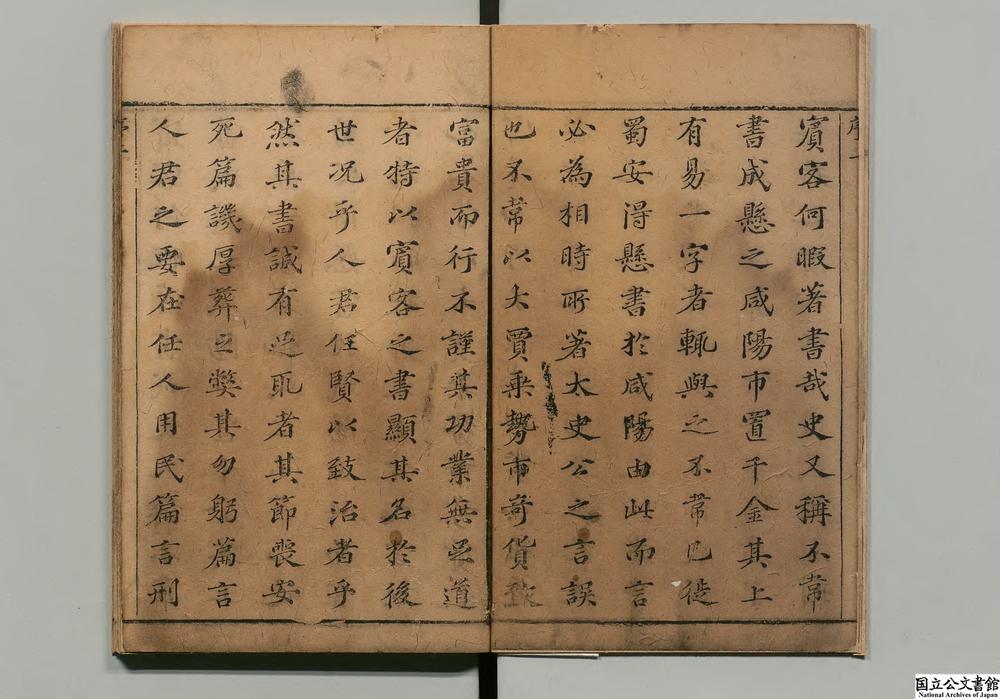 賓客何暇著書哉史又稱不常
書成懸之咸陽市置千金其上
有易一字者輒與之不常已徙
蜀安得懸書於咸陽由此而言
必為相時所著太史公之言誤
也不常以大賈乘勢市奇貨致
富貴而行不謹其功業無足道
者特以賓客之書顯其名於後
世況乎人君任賢以致治者乎
然其書誠有足取者其節喪安
死篇譏厚葬之弊其勿躬篇言
人君之要在任人用民篇言刑
国立公文書館
National Archives of Japan